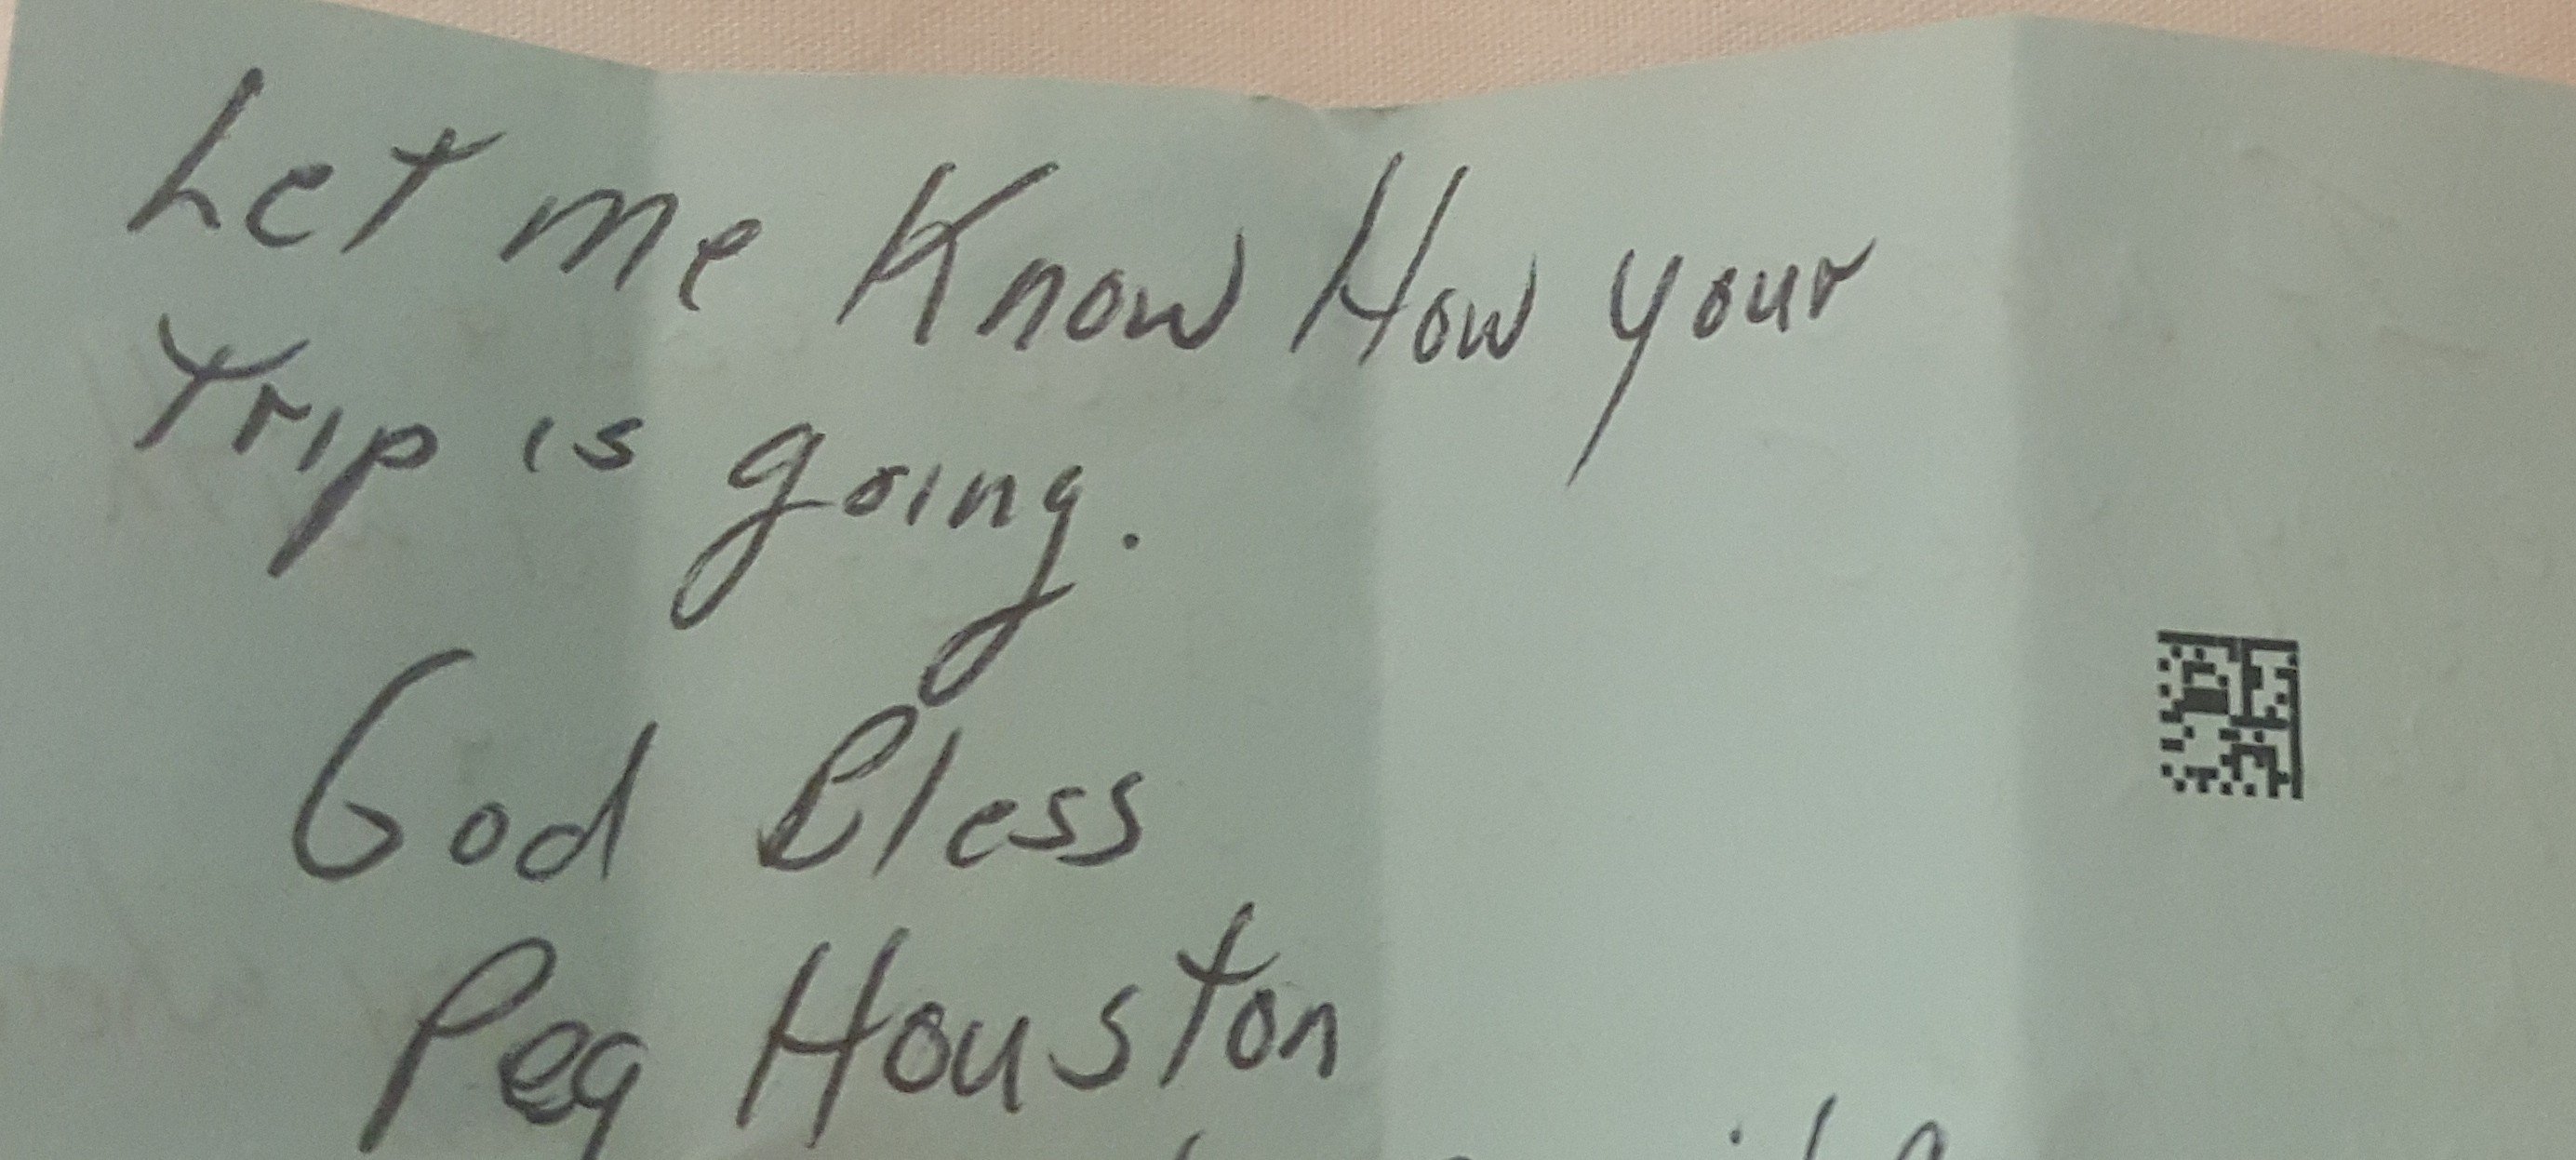 Let me Know How your
Trip is going.
God Bless
Peg Houston